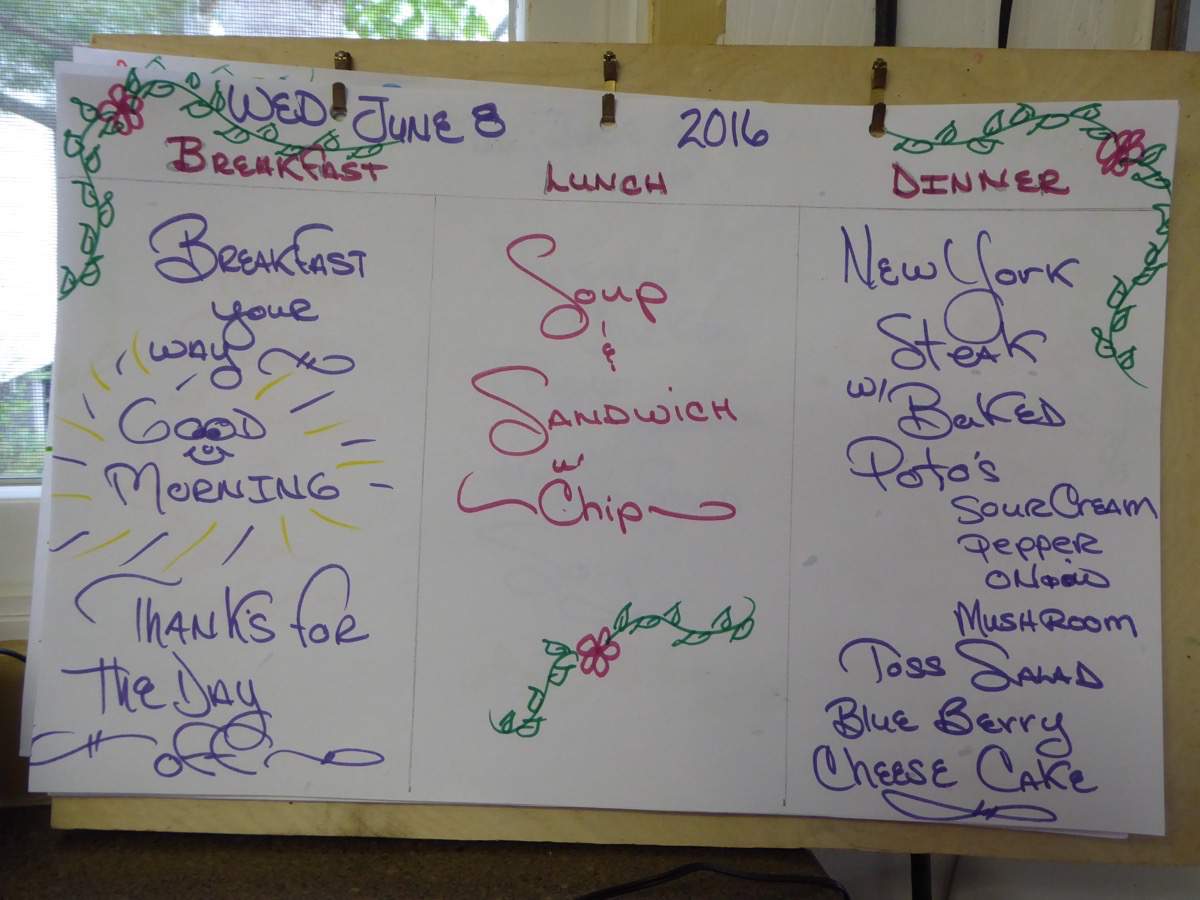 WED JUNE 8 2016
BREAKFAST
BREAKFAST
your
way
GOOD
MORNING
THANKS FOR
THE DAY
OFF
LUNCH
Soup
&
SANDWICH
w/
Chip
DINNER
NEW YORK
STEAK
w/ BAKED
Poto's
SOUR CREAM
PEPPER
ONION
MUSHROOM
TOSS SALAD
Blue Berry
CHEESE CAKE